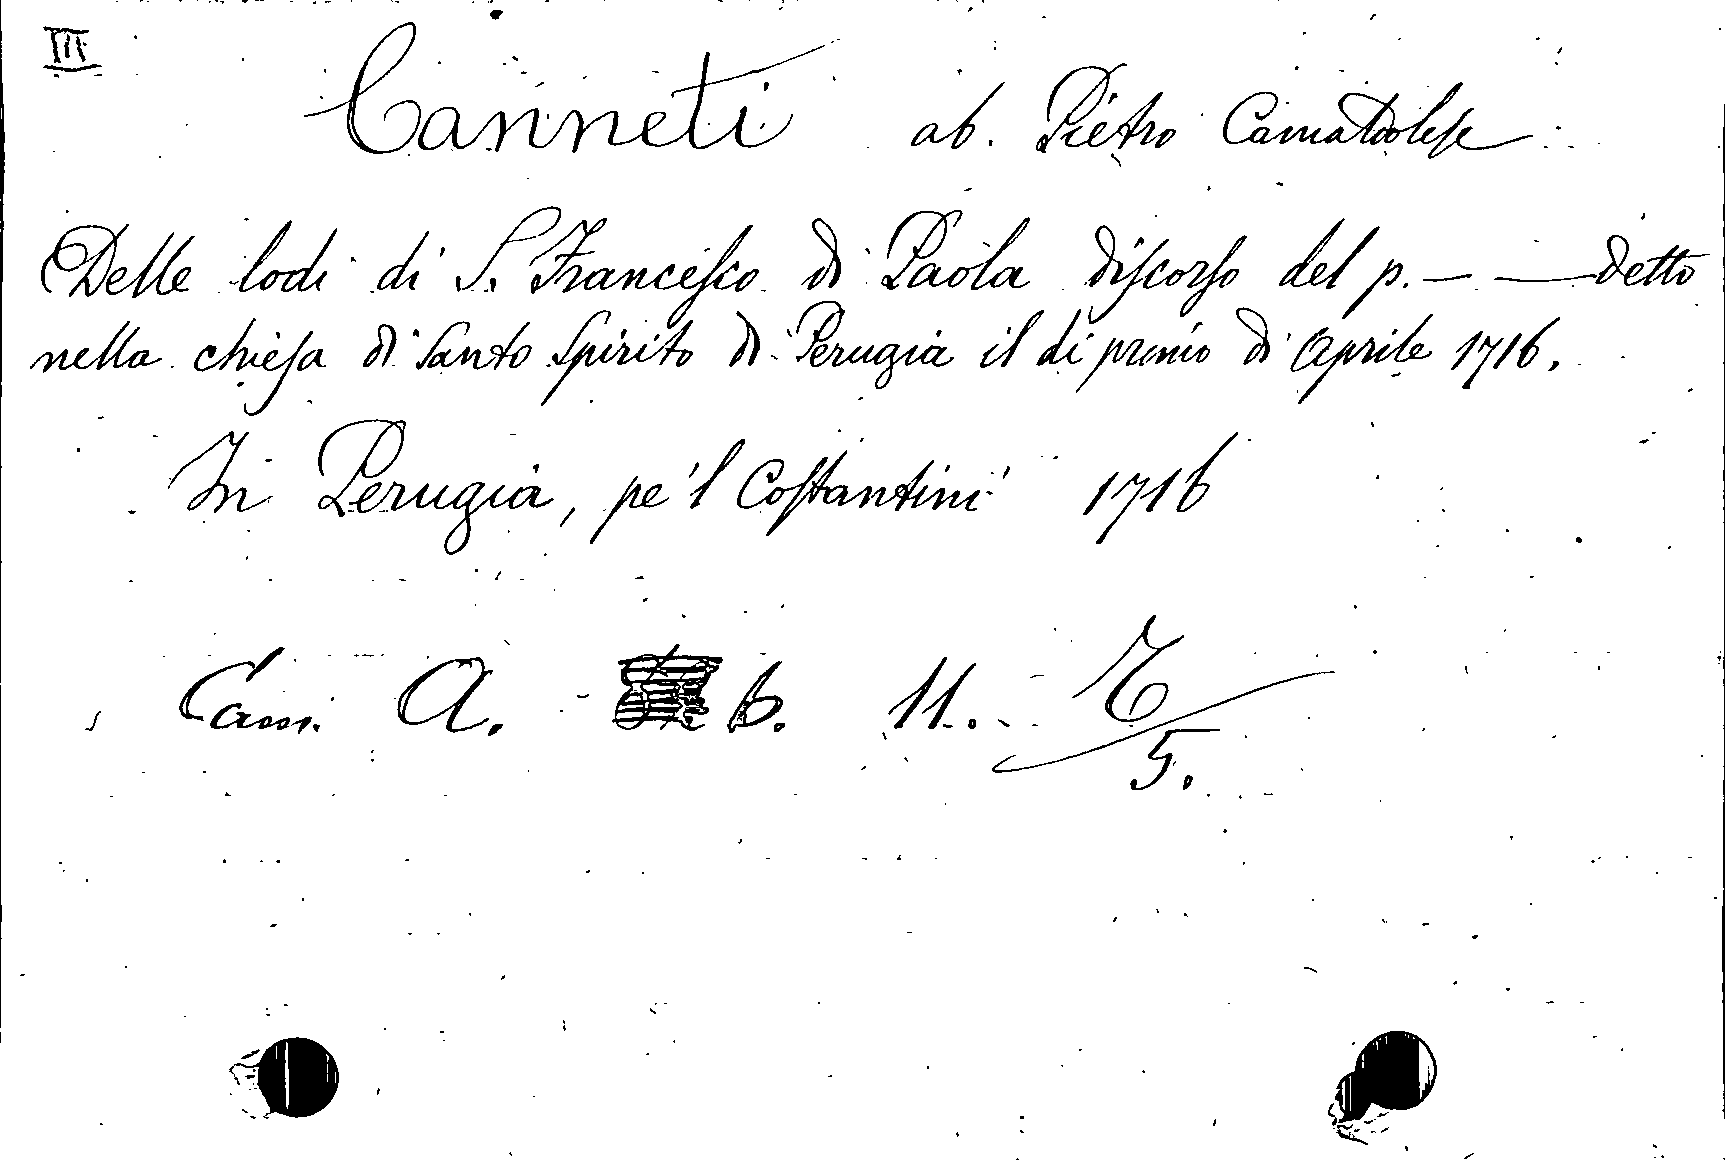 III
Canneti ab. Pietro Camaldolese
Delle lodi di S. Francesco di Paola discorso del p. — — detto
nella chiesa di Santo Spirito di Perugia il di primo di Aprile 1716.
In Perugia, pe'l Costantini 1716
Cam. A. b. 11.
5.